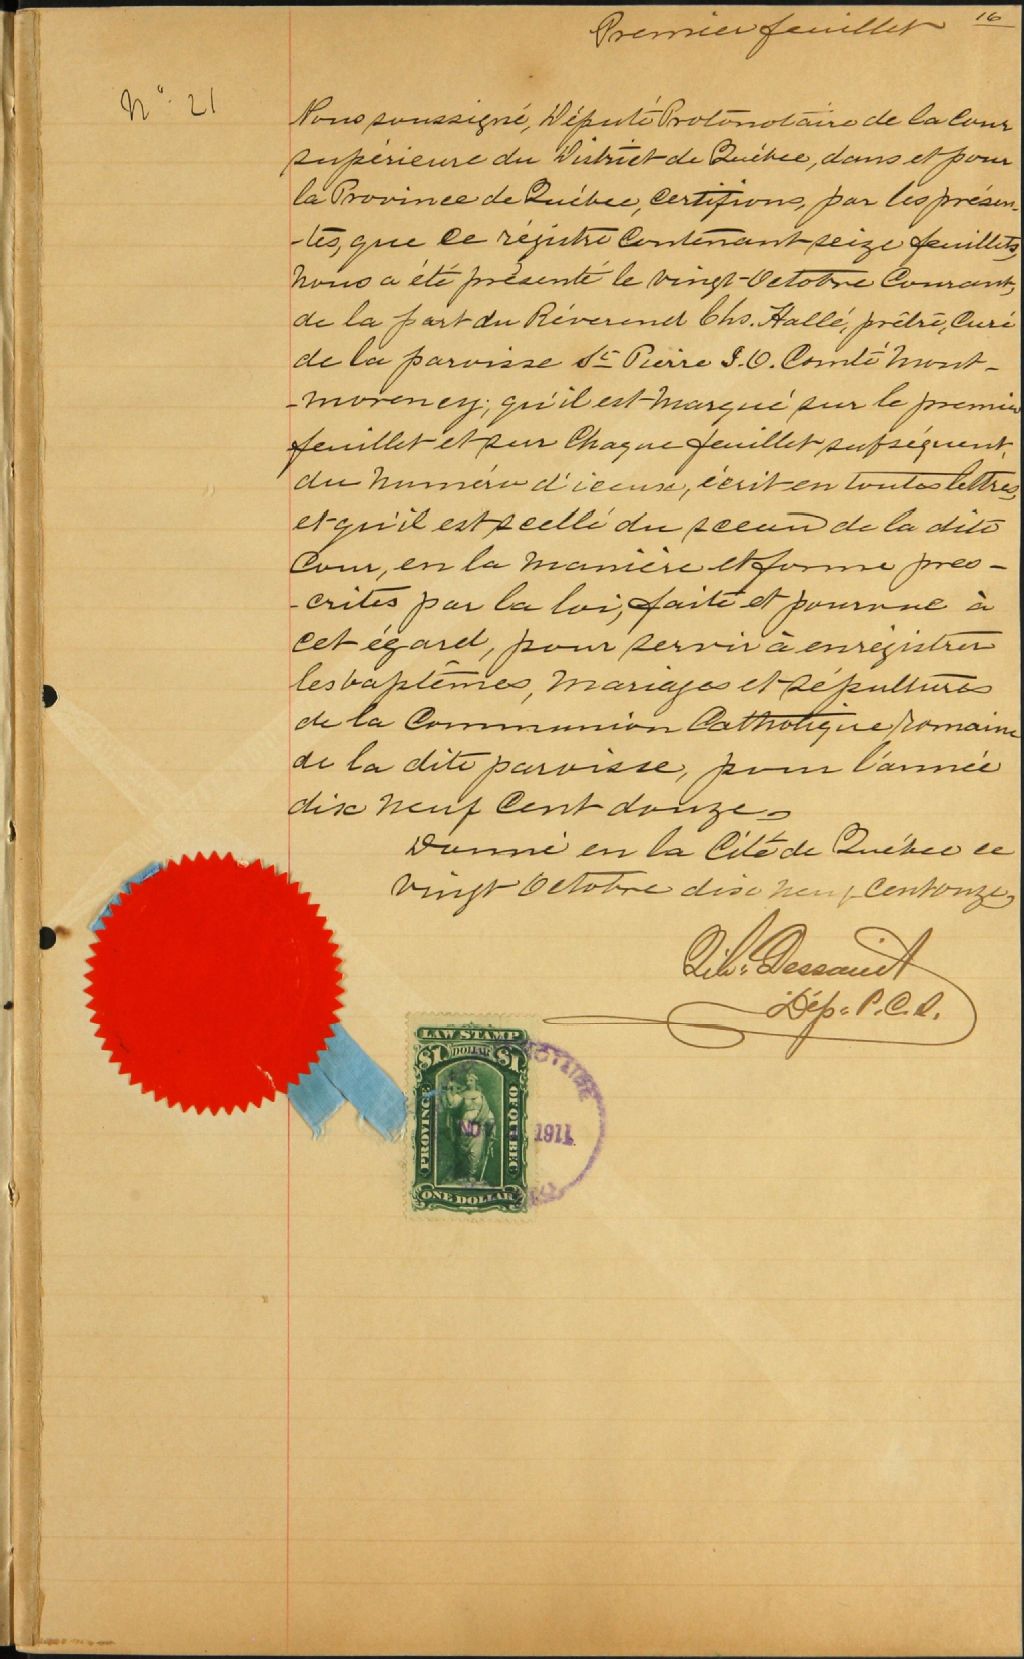 16
Premier feuillet
No. 21
Nous soussigné, Député Protonotaire de la Cour
supérieure du District de Québec, dans et pour
la Province de Québec, certifions, par les présen-
-tes, que ce régistre contenant seize feuillets,
nous a été présenté le vingt Octobre courant,
de la part du Révérend Chs. Hallé, prêtre, curé
de la paroisse St Pierre I.O. Comté Mont-
-morency; qu'il est marqué sur le premier
feuillet et sur chaque feuillet subséquent,
du numéro d'iceux, écrit en toutes lettres,
et qu'il est scellé du sceau de la dite
Cour, en la manière et forme pres-
-crites par la loi, faite et pourvue à
cet égard, pour servir à enrégistrer
les baptêmes, mariages et sépultures
de la Communion Catholique romaine
de la dite paroisse, pour l'année
dix neuf cent douze.
Donné en la Cité de Québec ce
vingt Octobre dix neuf cent onze,
Dessault
Dép. P.C.S.
LAW STAMP
$1 DOLLAR $1
PROVINCE OF QUEBEC
ONE DOLLAR
NOV 1911